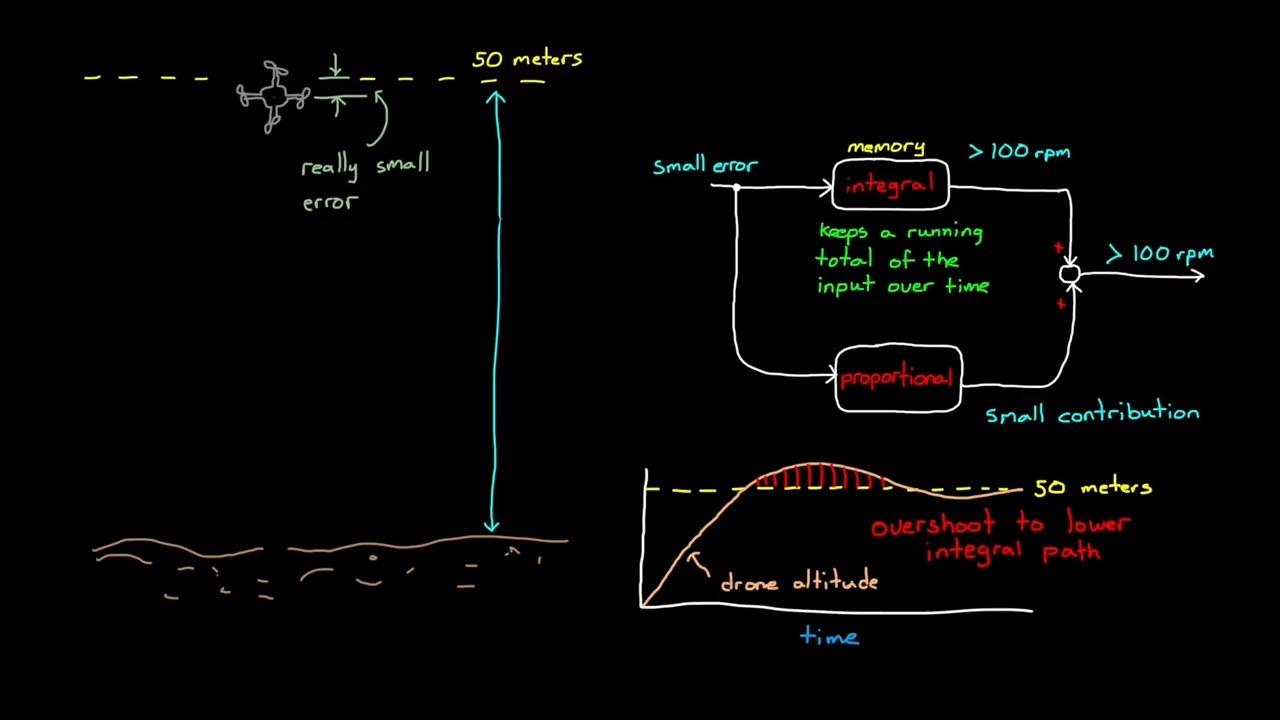 50 meters
really small
error
small error
memory
> 100 rpm
integral
keeps a running
total of the
input over time
+
> 100 rpm
+
proportional
small contribution
50 meters
overshoot to lower
integral path
drone altitude
time